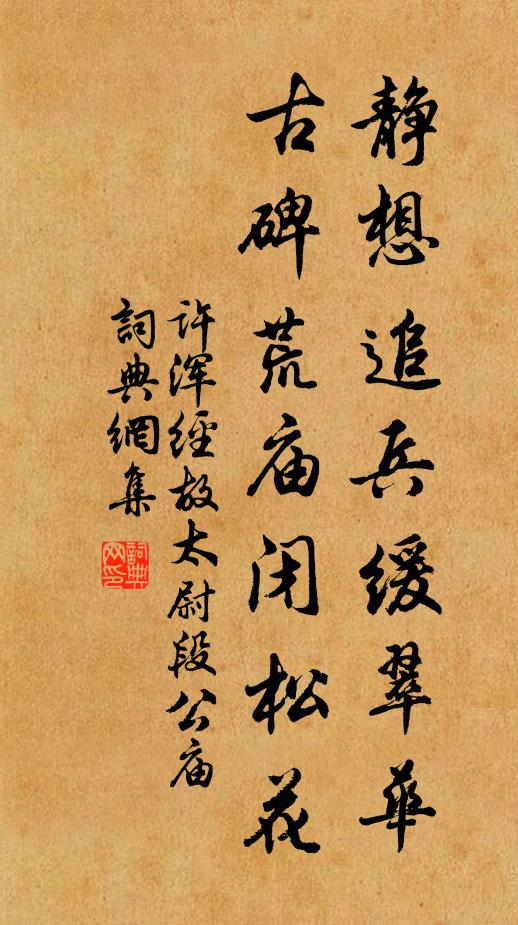 静想追兵缓翠華
古碑荒庙闭松花
许浑经故太尉段公庙
詞典網集
詞典网印